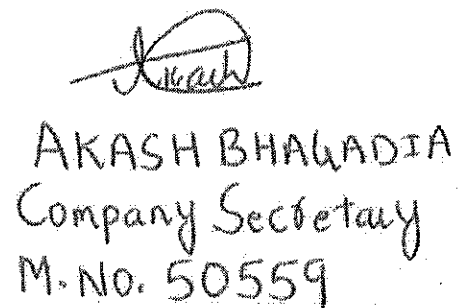 Akash
AKASH BHAGADIA
Company Secretary
M. No. 50559